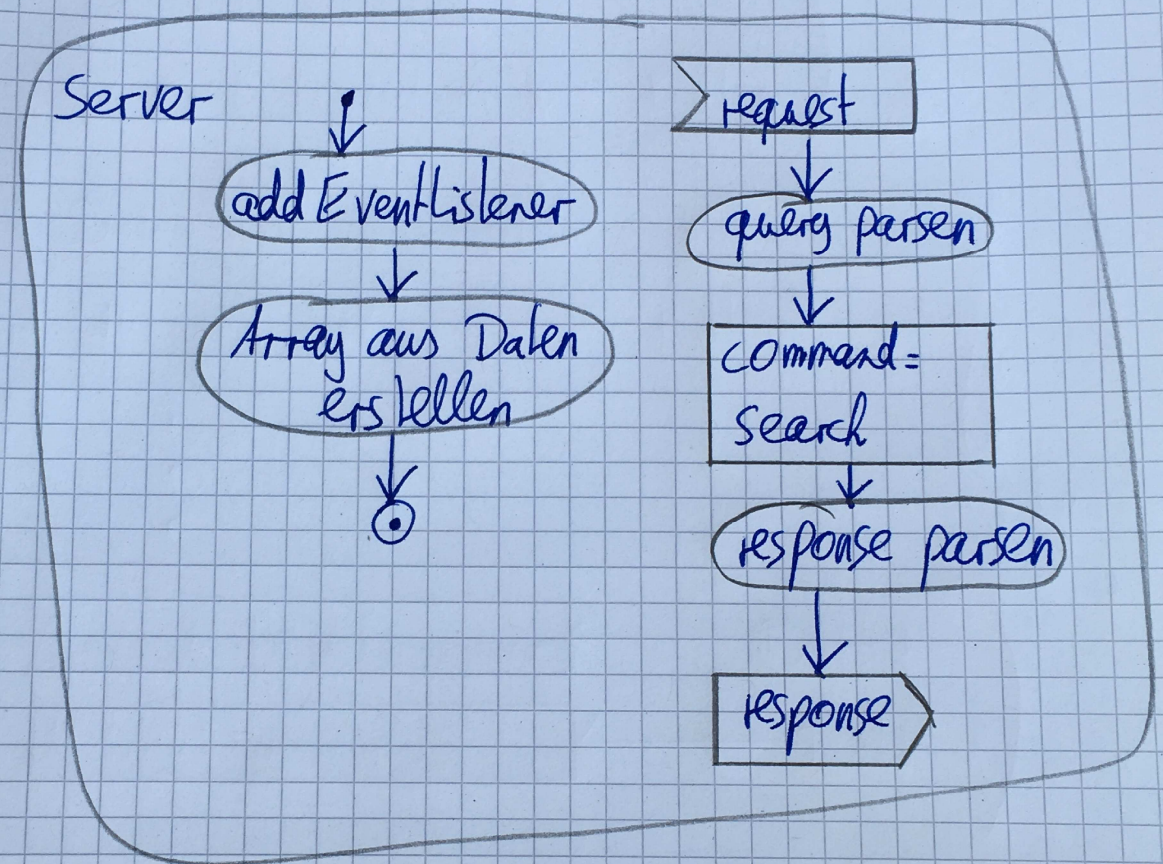 Server
addEventListener
Array aus Daten
erstellen
request
query parsen
command=
search
response parsen
response